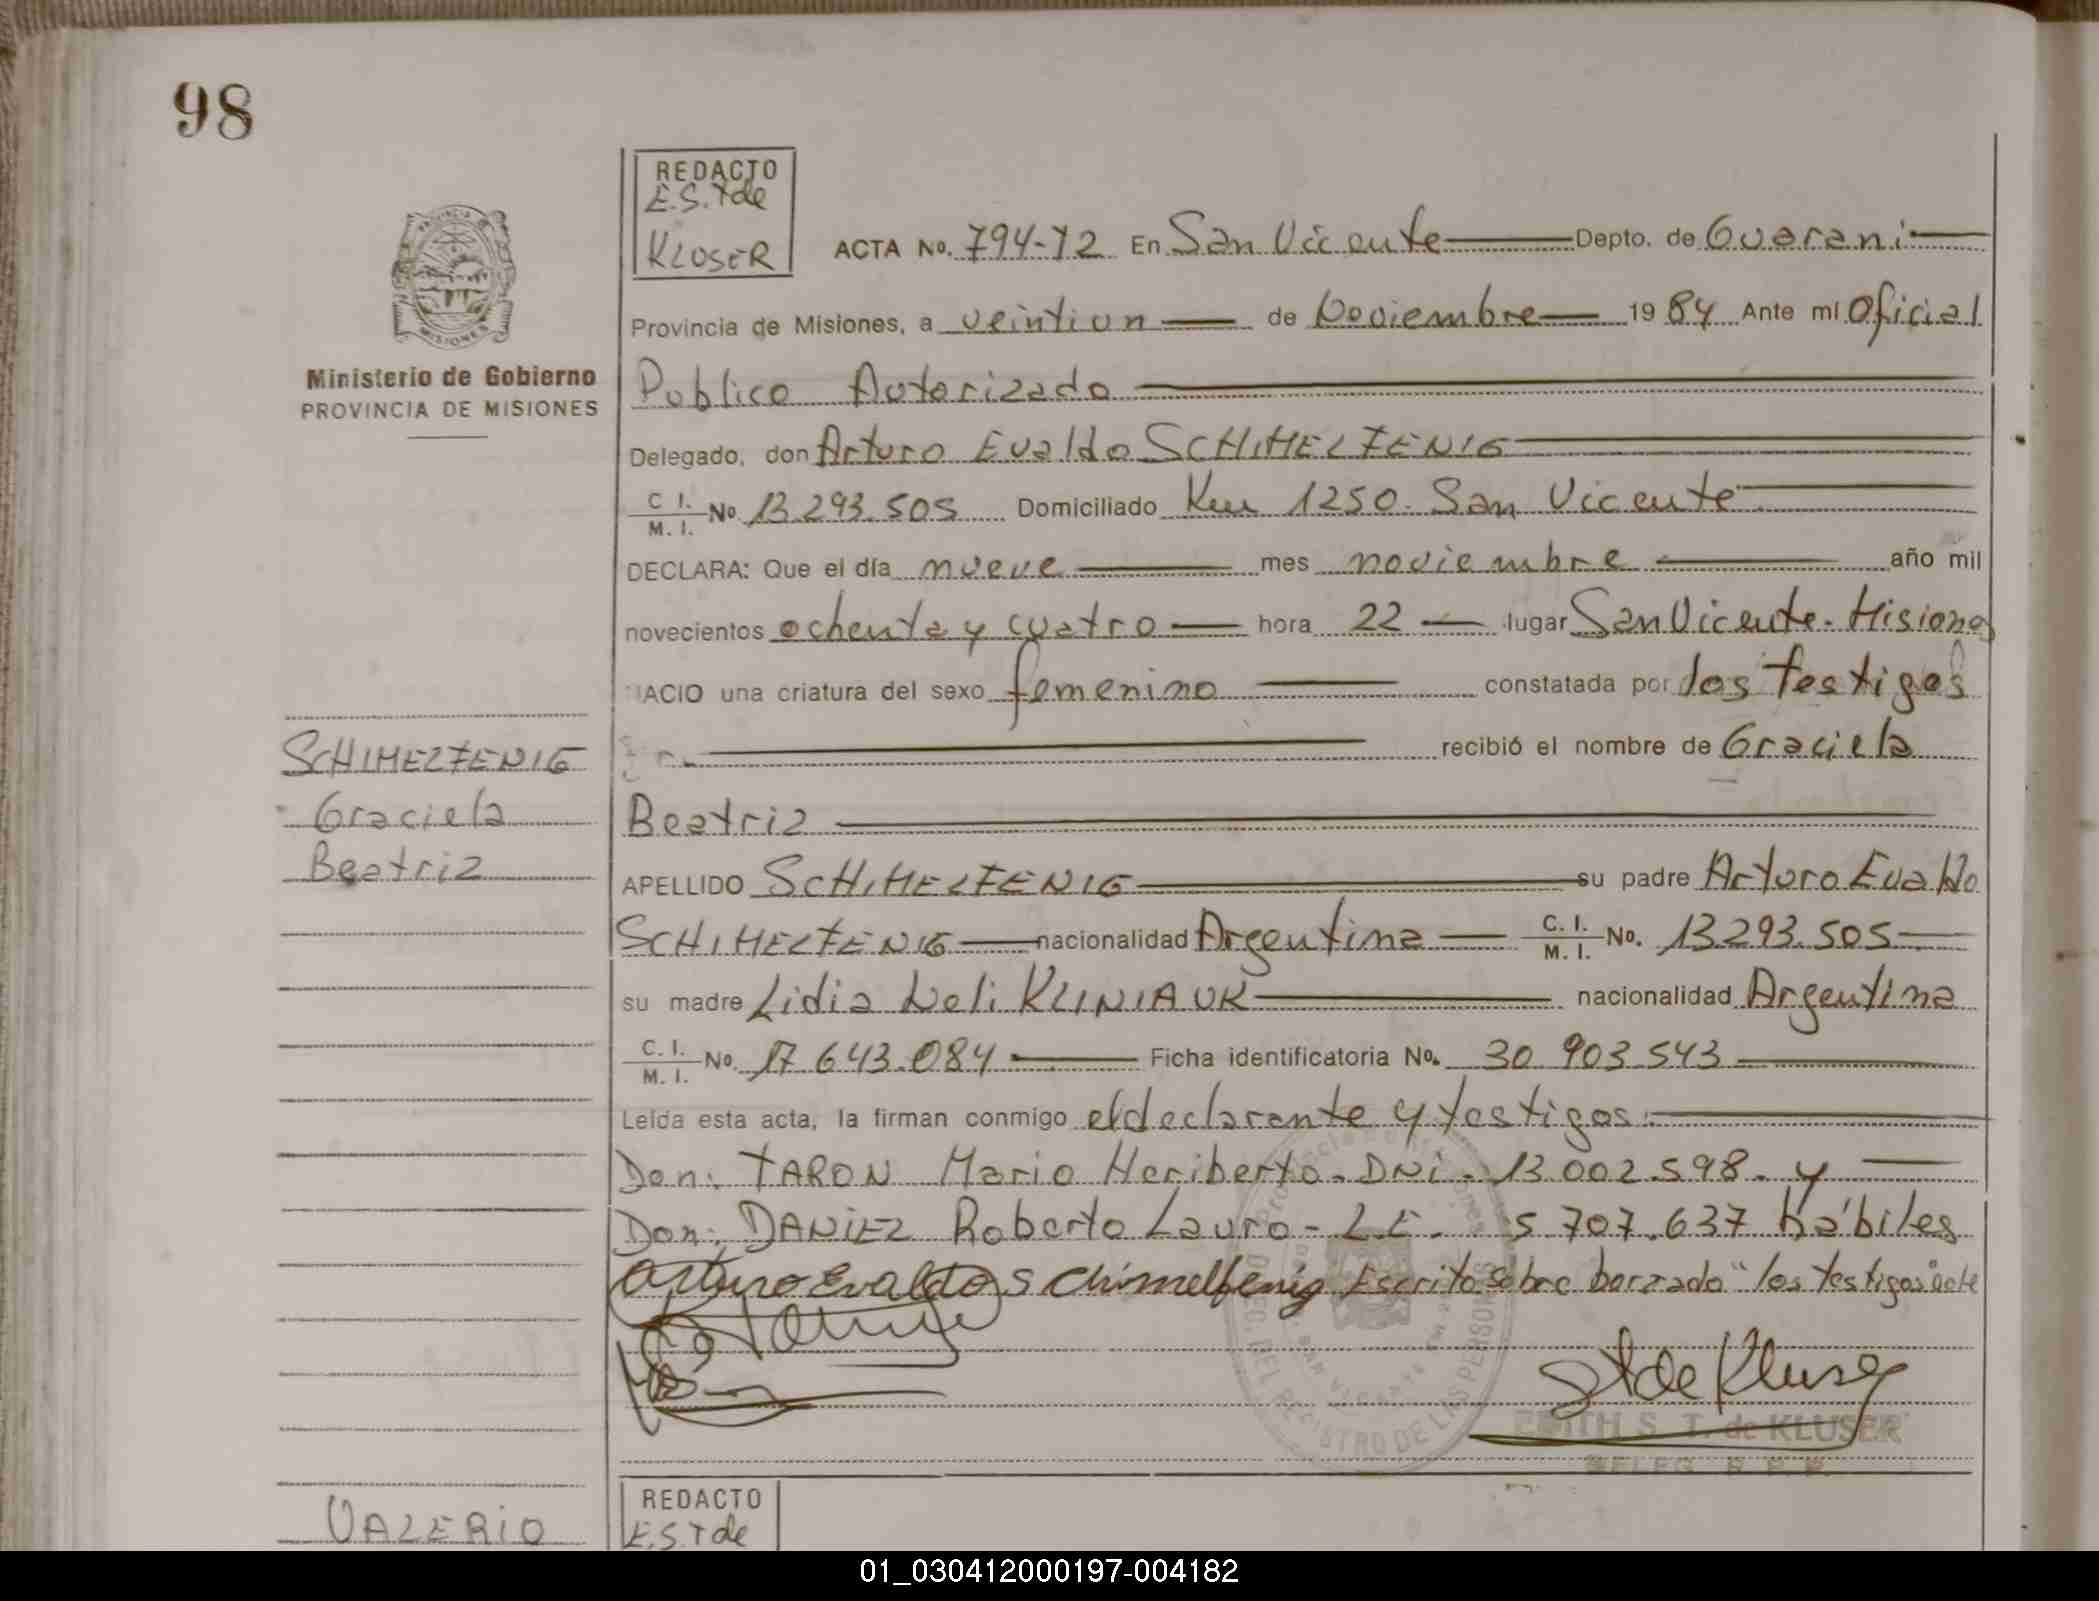 98
REDACTO
E.S.T de
KLUSER
ACTA No. 794-T2 En San Vicente Depto. de Guarani
Provincia de Misiones, a veintiun de Noviembre 1984 Ante mi Oficial
Publico Autorizado
Ministerio de Gobierno
PROVINCIA DE MISIONES
Delegado, don Arturo Evaldo SCHIMELFENIG
C. I. M. I. No 13.293.505 Domiciliado Km 1250. San Vicente
DECLARA: Que el día nueve mes noviembre año mil
novecientos ochenta y cuatro hora 22 lugar San Vicente. Misiones
NACIO una criatura del sexo femenino constatada por los testigos
recibió el nombre de Graciela
SCHIMELFENIG
Graciela
Beatriz
Beatriz
APELLIDO SCHIMELFENIG su padre Arturo Evaldo
SCHIMELFENIG nacionalidad Argentina C. I. M. I. No. 13.293.505
su madre Lidia Neli KLINIAUK nacionalidad Argentina
C. I. M. I. No. 17.643.084 Ficha identificatoria No. 30.903.543
Leída esta acta, la firman conmigo el declarante y testigos:
Don: TARON Mario Heriberto. DNI. 13.002.598. y
Don: DANIEL Roberto Lauro - L.E. 5.707.637 hábiles
Arturo Evaldo Schimelfenig Escrito sobre borrado "los testigos"
ST de Kluser
EDITH S. T. de KLUSER
DELEG. R. P. P.
REDACTO
E.S.T de
VALERIO
01_030412000197-004182